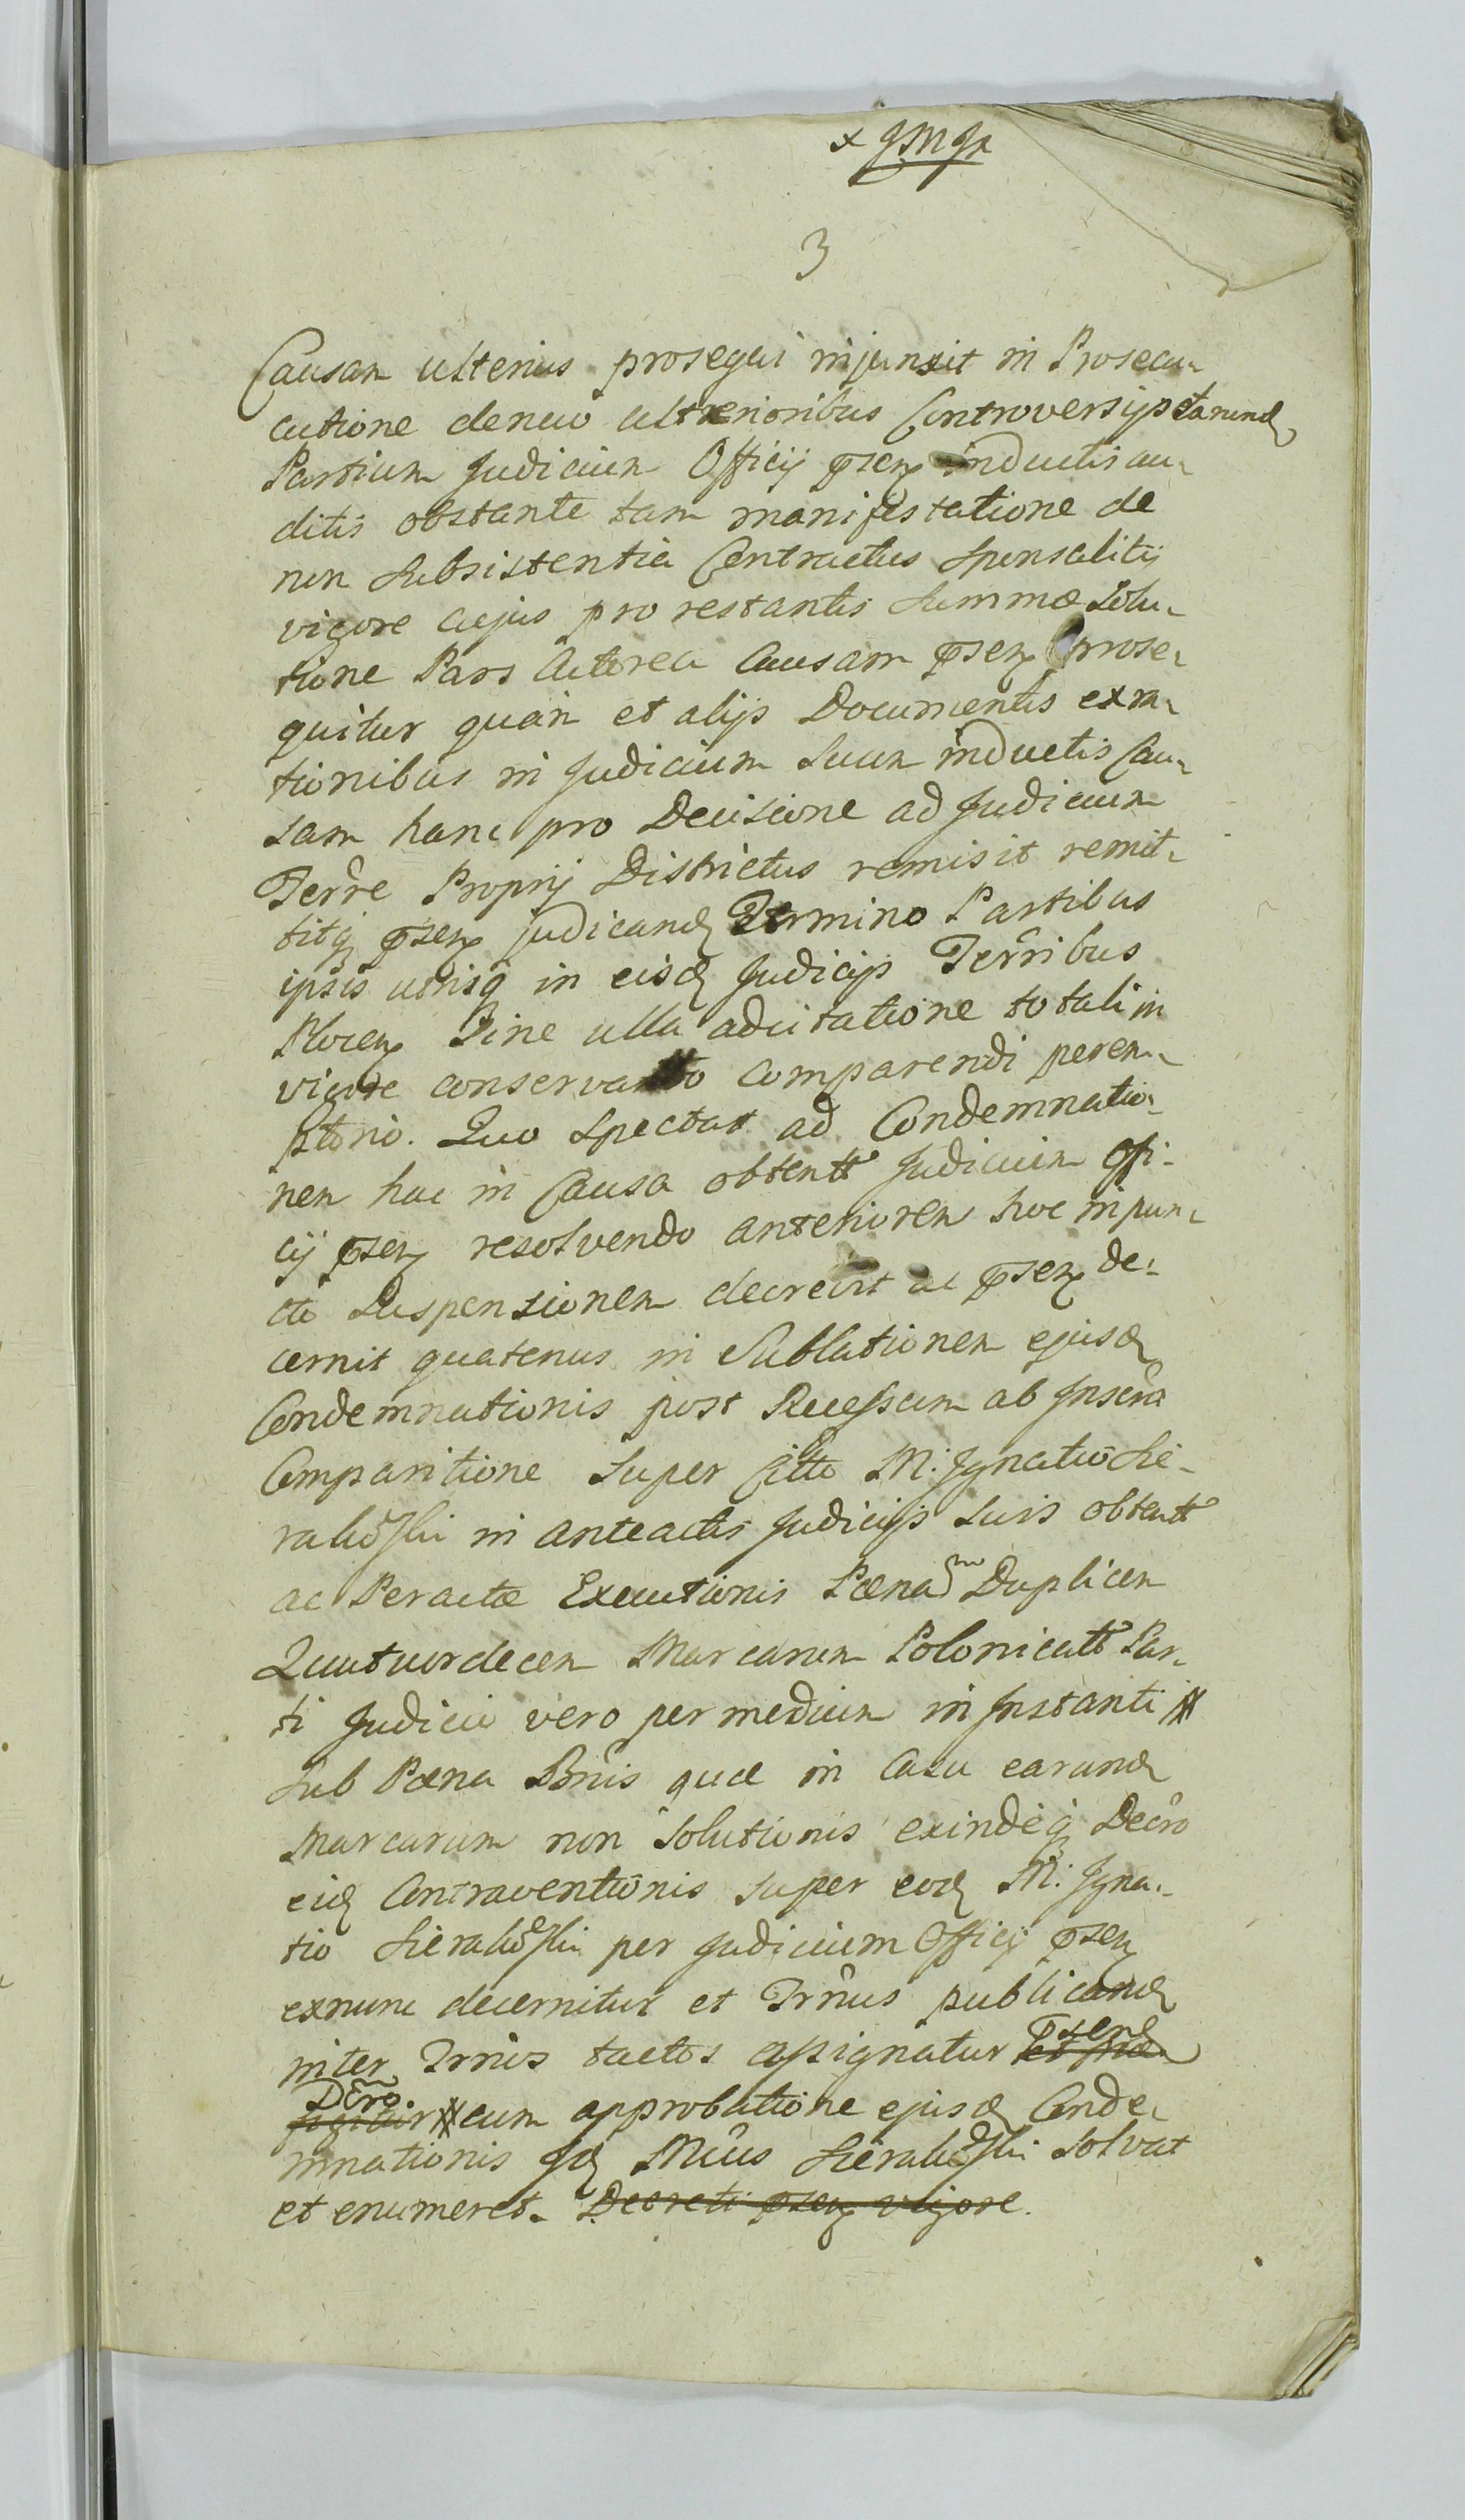 3
Causam ulterius prosequi injunxit in Prosecu-
cutione denuo ulterioribus Controversijs earund
Partium Judicium Officij psen inductis au-
ditis obstante tam manifestatione de
non Subsistentia Contractus Sponsalitij
vigore cujus pro restantis Summæ Solu-
tione Pars Actorea Causam psen prose-
quitur quàm et alijs Documentis exra-
tionibus in Judicium Suum inductis Cau-
sam hanc pro Decisione ad Judicium
Terrê Proprij Districtus remisit remit-
titq psen judicand Termino Partibus
ipsis utrisq in eisd Judicijs Terrîbus
Plocen Sine ulla adcitatione totali in
vigore conservatto comparendi perem-
ptorio. Quo Spectat ad Condemnatio-
nem hac in Causa obtent Judicium Offi-
cij psen resolvendo anteriorem hoc in pun-
cto Suspensionem decrevit ac psen de-
cernit quatenus in Sublationem ejusd
Condemnationis post Recessum ab Inscrîa
Comparitione Super Citto M: Ignatio Sie-
rakoski in anteactis Judicijs Suis obtent
ac Peractæ Executionis Pænam Duplicem
Quatuordecem Marcarum Polonicatt Par-
ti Judicio vero per medium in Instanti
Sub Pæna Bnîs quæ in Casu earund
Marcarum non Solutionis exindeq Decro
eid Contraventionis Super eod M: Igna-
tio Sierakoski per Judicium Officij psen
exnunc decernitur et Trnûs publicand
inter Trnôs tactos assignatur psen
Dcro cum approbatione ejusd Conde-
mnationis Id Mcus Sierakoski Solvat
et enumeret. Decreti psen vigore.